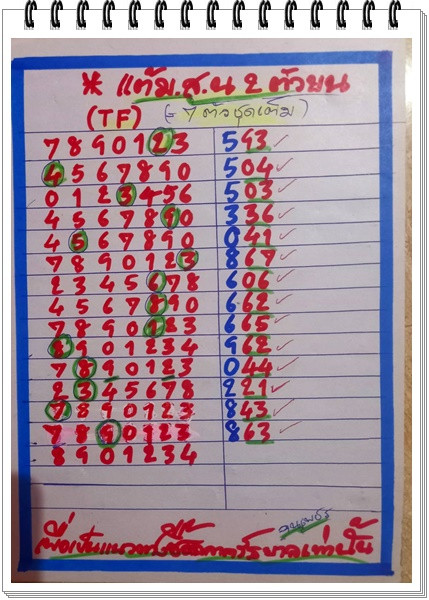 * แต้ม.สูน 2 ตัวบน
(TF) (= 7 ตัวชุดเต็ม)
7 8 9 0 1 2 3 593 ✓
4 5 6 7 8 9 0 504 ✓
0 1 2 3 4 5 6 503 ✓
4 5 6 7 8 9 0 336 ✓
4 5 6 7 8 9 0 041 ✓
7 8 9 0 1 2 3 867 ✓
2 3 4 5 6 7 8 606 ✓
4 5 6 7 8 9 0 662 ✓
7 8 9 0 1 2 3 665 ✓
8 9 0 1 2 3 4 962 ✓
7 8 9 0 1 2 3 044 ✓
2 3 4 5 6 7 8 221 ✓
7 8 9 0 1 2 3 843 ✓
7 8 9 0 1 2 3 863 ✓
8 9 0 1 2 3 4
เพื่อเป็นแนวทาง เท่านั้น